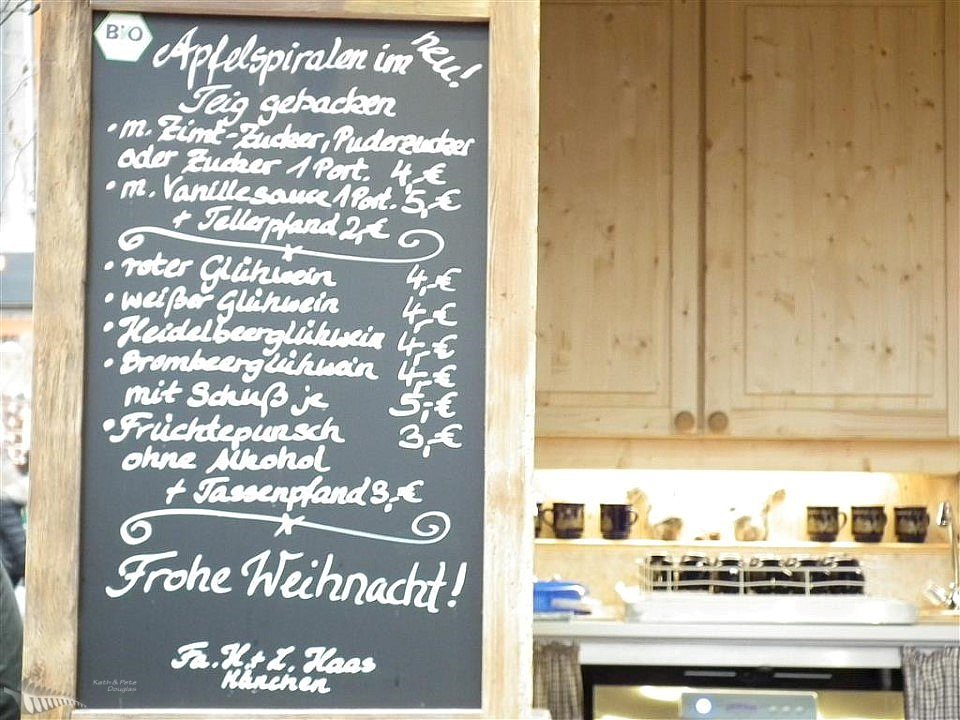 BiO
Apfelspiralen im neu!
Teig gebacken
• m. Zimt-Zucker, Puderzucker
oder Zucker 1 Port. 4,-€
• m. Vanillesauce 1 Port. 5,-€
+ Tellerpfand 2,-€
• roter Glühwein 4,-€
• weißer Glühwein 4,-€
• Heidelbeerglühwein 4,-€
• Brombeerglühwein 4,-€
mit Schuß je 5,-€
• Früchtepunsch 3,-€
ohne Alkohol
+ Tassenpfand 3,-€
Frohe Weihnacht!
Fa. H. + L. Haas
München
Kath & Pete
Douglas